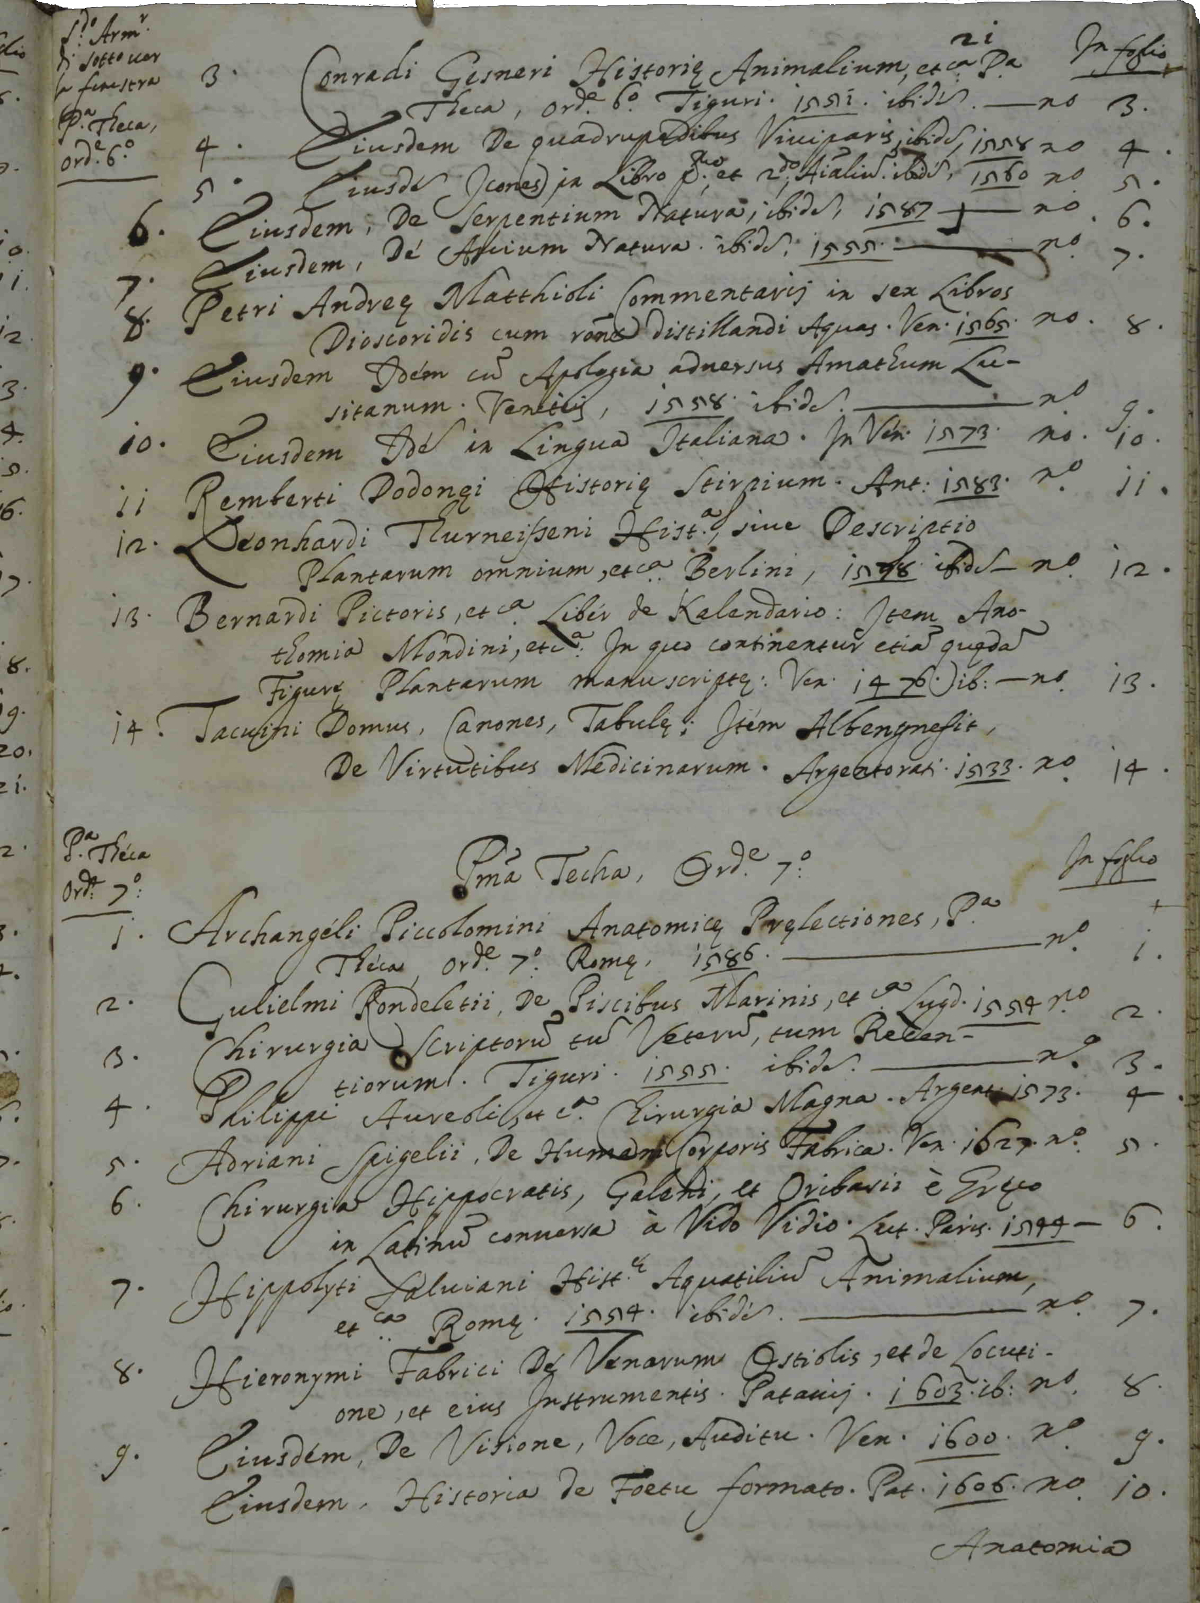 21
In foglio
S.do Arm.r
di sotto uer
la finestra
P.a Theca,
ord.e 6.o
3. Conradi Gesneri Historię Animalium, et c.a P.a
Theca, ord.e 6.o Tiguri. 1551. ibid. — no 3.
4. Eiusdem De quadrupedibus Viviparis, ibid, 1558 no 4.
5. Eiusdē Icones in Libro p.mo, et 2.do, Aīaliū. ibid. 1560 no. 5.
6. Eiusdem, De Serpentium Natura, ibid, 1587 — no. 6.
7. Eiusdem, De Avium Natura. ibid. 1555. — no. 7.
8. Petri Andreę Matthioli Commentarij in sex Libros
Dioscoridis cum rōne distillandi Aquas. Ven. 1565. no. 8.
9. Eiusdem Idém cū Apologia aduersus Amathum Lu-
sitanum. Venetijs, 1558. ibid. — no. 9.
10. Eiusdem Idē in Lingua Italiana. In Ven. 1573. no. 10.
11 Remberti Dodonęi Historię Stirpium. Ant: 1583. no. 11.
12. Leonhardi Thurneisseni Hist.a, siue Descriptio
Plantarum omnium, et c.a Berlini, 1578 ibid — no. 12.
13. Bernardi Pictoris, et c.a Liber de Kalendario: Item Ano-
thomia Mondini, et c.a: In quo continentur etiā quędā
Figurę Plantarum manuscriptę: Ven. 1476. ib: — no. 13.
14. Tacuini Domus, Canones, Tabulę; Item Albengnefit,
De Virtutibus Medicinarum. Argentorati. 1533. no. 14.
P.a Theca
Ord.e 7.o:
Pmā Techa, Ord.e 7.o:
In foglio
1. Archangéli Piccolomini Anatomicę Pręlectiones, P.a
Theca, ord.e 7.o Romę, 1586. — no. 1.
2. Gulielmi Rondeletii, De Piscibus Marinis, et c.a Lugd. 1554 no. 2.
3. Chirurgia Scriptorū tū Veterū, tum Recen-
tiorum. Tiguri. 1555. ibid. — no. 3.
4. Philippi Aureoli, et c.a Chirurgia Magna. Argent: 1573. 4.
5. Adriani Spigelii, De Humani Corporis Fabrica. Ven. 1627. no. 5.
6 Chirurgia Hippocratis, Galeni, et Oribasii è Gręco
in Latinū conuersa à Vido Vidio. Lut. Paris. 1544 — 6.
7. Hippolyti Saluiani Hist.ę Aquatiliū Animalium,
et c.a Romę. 1554. ibid. — no. 7.
8. Hieronymi Fabrici De Venarum Ostiolis, et de Locuti-
one, et eius Instrumentis. Patauij. 1603. ib: no. 8.
9. Eiusdém, De Visione, Voce, Auditu. Ven. 1600. no. 9.
Eiusdem, Historia de Foetu formato. Pat. 1606. no. 10.
Anatomia